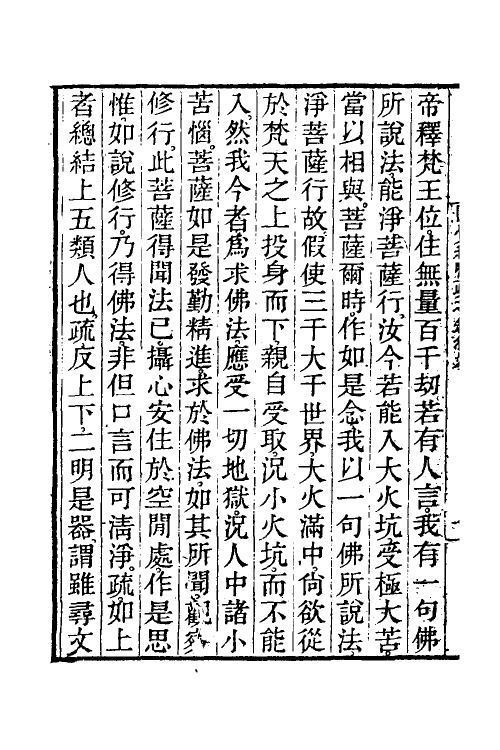 帝釋梵王位。住無量百千劫。若有人言。我有一句佛
所說法。能淨菩薩行。汝今若能入大火坑。受極大苦。
當以相與。菩薩爾時。作如是念。我以一句佛所說法。
淨菩薩行故。假使三千大千世界。大火滿中。尚欲從
於梵天之上投身而下。親自受取。況小火坑。而不能
入。然我今者。爲求佛法。應受一切地獄。況人中諸小
苦惱。菩薩如是發勤精進。求於佛法。如其所聞。觀察
修行。此菩薩得聞法已。攝心安住於空閒處。作是思
惟。如說修行。乃得佛法。非但口言而可清淨。疏。如上
者總結上五類人也。疏反上下。二明是器。謂雖尋文